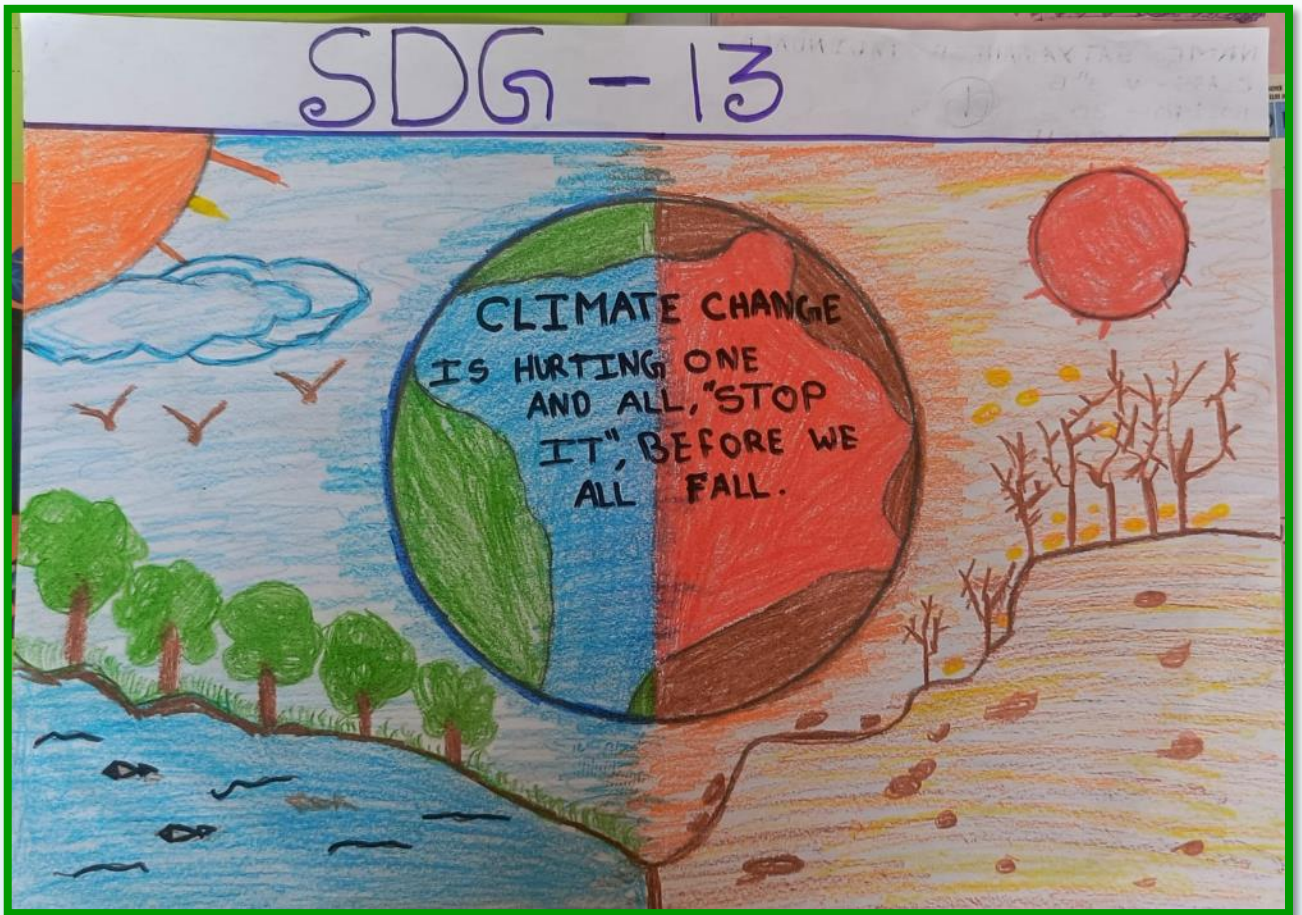 SDG - 13
CLIMATE CHANGE
IS HURTING ONE
AND ALL, "STOP
IT", BEFORE WE
ALL FALL.